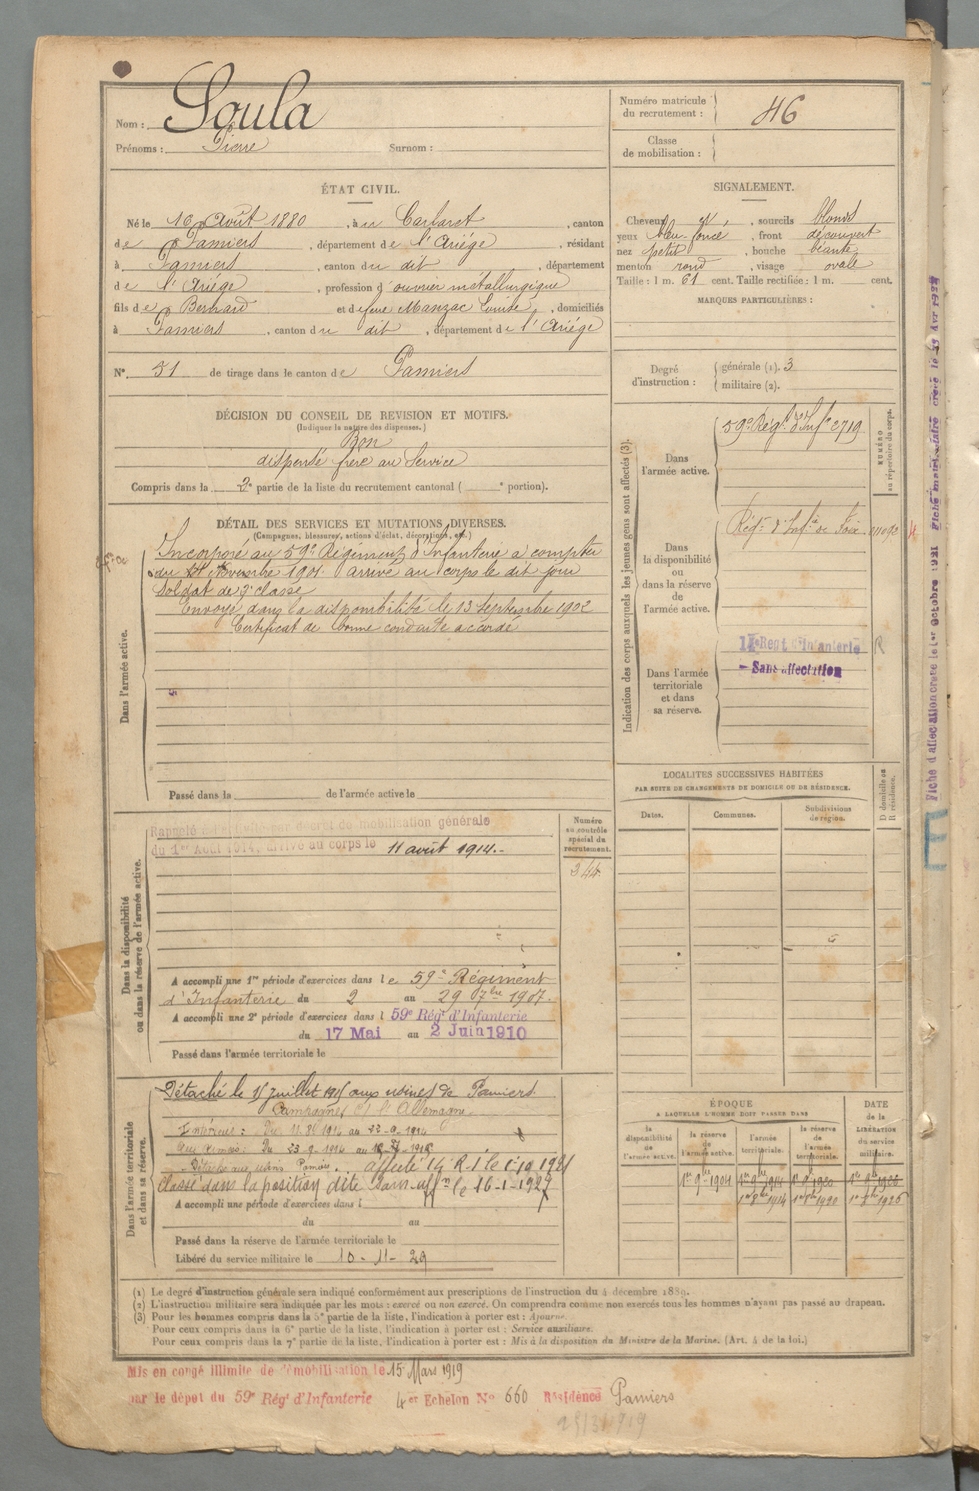 Nom : Soula
Prénoms : Pierre Surnom :
Numéro matricule du recrutement : 46
Classe de mobilisation :
ÉTAT CIVIL.
Né le 16 Août 1880, à un Carlaret, canton
de Pamiers, département de l'Ariége, résidant
à Pamiers, canton du dit, département
de l'Ariége, profession d'ouvrier métallurgique
fils de Bernard et de feue Manzac Louise, domiciliés
à Pamiers, canton du dit, département de l'Ariége
N° 51 de tirage dans le canton de Pamiers
SIGNALEMENT.
Cheveux, sourcils blonds
yeux bleu foncé, front découvert
nez petit, bouche béante
menton rond, visage ovale
Taille : 1 m. 61 cent. Taille rectifiée : 1 m. cent.
MARQUES PARTICULIÈRES :
Degré d'instruction :
générale (1). 3
militaire (2).
DÉCISION DU CONSEIL DE REVISION ET MOTIFS.
(Indiquer la nature des dispenses.)
Bon
dispensé frère au Service
Compris dans la 2e partie de la liste du recrutement cantonal ( e portion).
DÉTAIL DES SERVICES ET MUTATIONS DIVERSES.
(Campagnes, blessures, actions d'éclat, décorations, etc.)
Dans l'armée active.
Incorporé au 59e Régiment d'Infanterie à compter
du Novembre 1901 arrivé au corps le dit jour
Soldat de 2e classe
Envoyé dans la disponibilité le 13 Septembre 1902
Certificat de bonne conduite accordé
Passé dans la de l'armée active le
Indication des corps auxquels les jeunes gens sont affectés (3).
NUMÉRO au répertoire du corps.
Dans l'armée active.
59e Régt d'Infie 2719
Dans la disponibilité ou dans la réserve de l'armée active.
Régt d'Infie de Foix
Dans l'armée territoriale et dans sa réserve.
Regt d'Infanterie R
Sans affectation
LOCALITÉS SUCCESSIVES HABITÉES
PAR SUITE DE CHANGEMENTS DE DOMICILE OU DE RÉSIDENCE.
Dates. Communes. Subdivisions de région.
D domicile ou R résidence.
Dans la disponibilité ou dans la réserve de l'armée active.
Rappelé à l'activité par décret de mobilisation générale
du 1er Août 1914, arrivé au corps le 11 août 1914.
Numéro au contrôle spécial du recrutement.
344
A accompli une 1re période d'exercices dans le 59e Régiment
d'Infanterie du 2 au 29 7bre 1907.
A accompli une 2e période d'exercices dans l 59e Régt d'Infanterie
du 17 Mai au 2 Juin 1910
Passé dans l'armée territoriale le
Dans l'armée territoriale et dans sa réserve.
Détaché le 15 juillet 1915 aux usines de Pamiers
Campagnes Ct l'Allemagne
Intérieur : Du 11.8.1914 au 22.9.1914
Aux Armées : Du 23.9.1914 au
Détaché aux usines Pamiers. affecté 14 R.I. le 1-10 1921
Classé dans la position dite sans affon le 16-1-1927
A accompli une période d'exercices dans l
du au
Passé dans la réserve de l'armée territoriale le
Libéré du service militaire le 10-11-29
ÉPOQUE
A LAQUELLE L'HOMME DOIT PASSER DANS
DATE de la LIBÉRATION du service militaire.
la disponibilité de l'armée active. la réserve de l'armée active. l'armée territoriale. la réserve de l'armée territoriale.
1er 9bre 1904 1er 9bre 1914 1er 9bre 1920 1er 9bre 1926
1er 8bre 1914 1er 8bre 1920 1er 8bre 1926
(1) Le degré d'instruction générale sera indiqué conformément aux prescriptions de l'instruction du 4 décembre 1889.
(2) L'instruction militaire sera indiquée par les mots : exercé ou non exercé. On comprendra comme non exercés tous les hommes n'ayant pas passé au drapeau.
(3) Pour les hommes compris dans la 5e partie de la liste, l'indication à porter est : Ajourné.
Pour ceux compris dans la 6e partie de la liste, l'indication à porter est : Service auxiliaire.
Pour ceux compris dans la 7e partie de la liste, l'indication à porter est : Mis à la disposition du Ministre de la Marine. (Art. 4 de la loi.)
Mis en congé illimité de démobilisation le 15 Mars 1919
par le dépôt du 59e Régt d'Infanterie 4er Echelon N° 660 Résidence Pamiers
Fiche d'affectation créée le 1er Octobre 1921
E